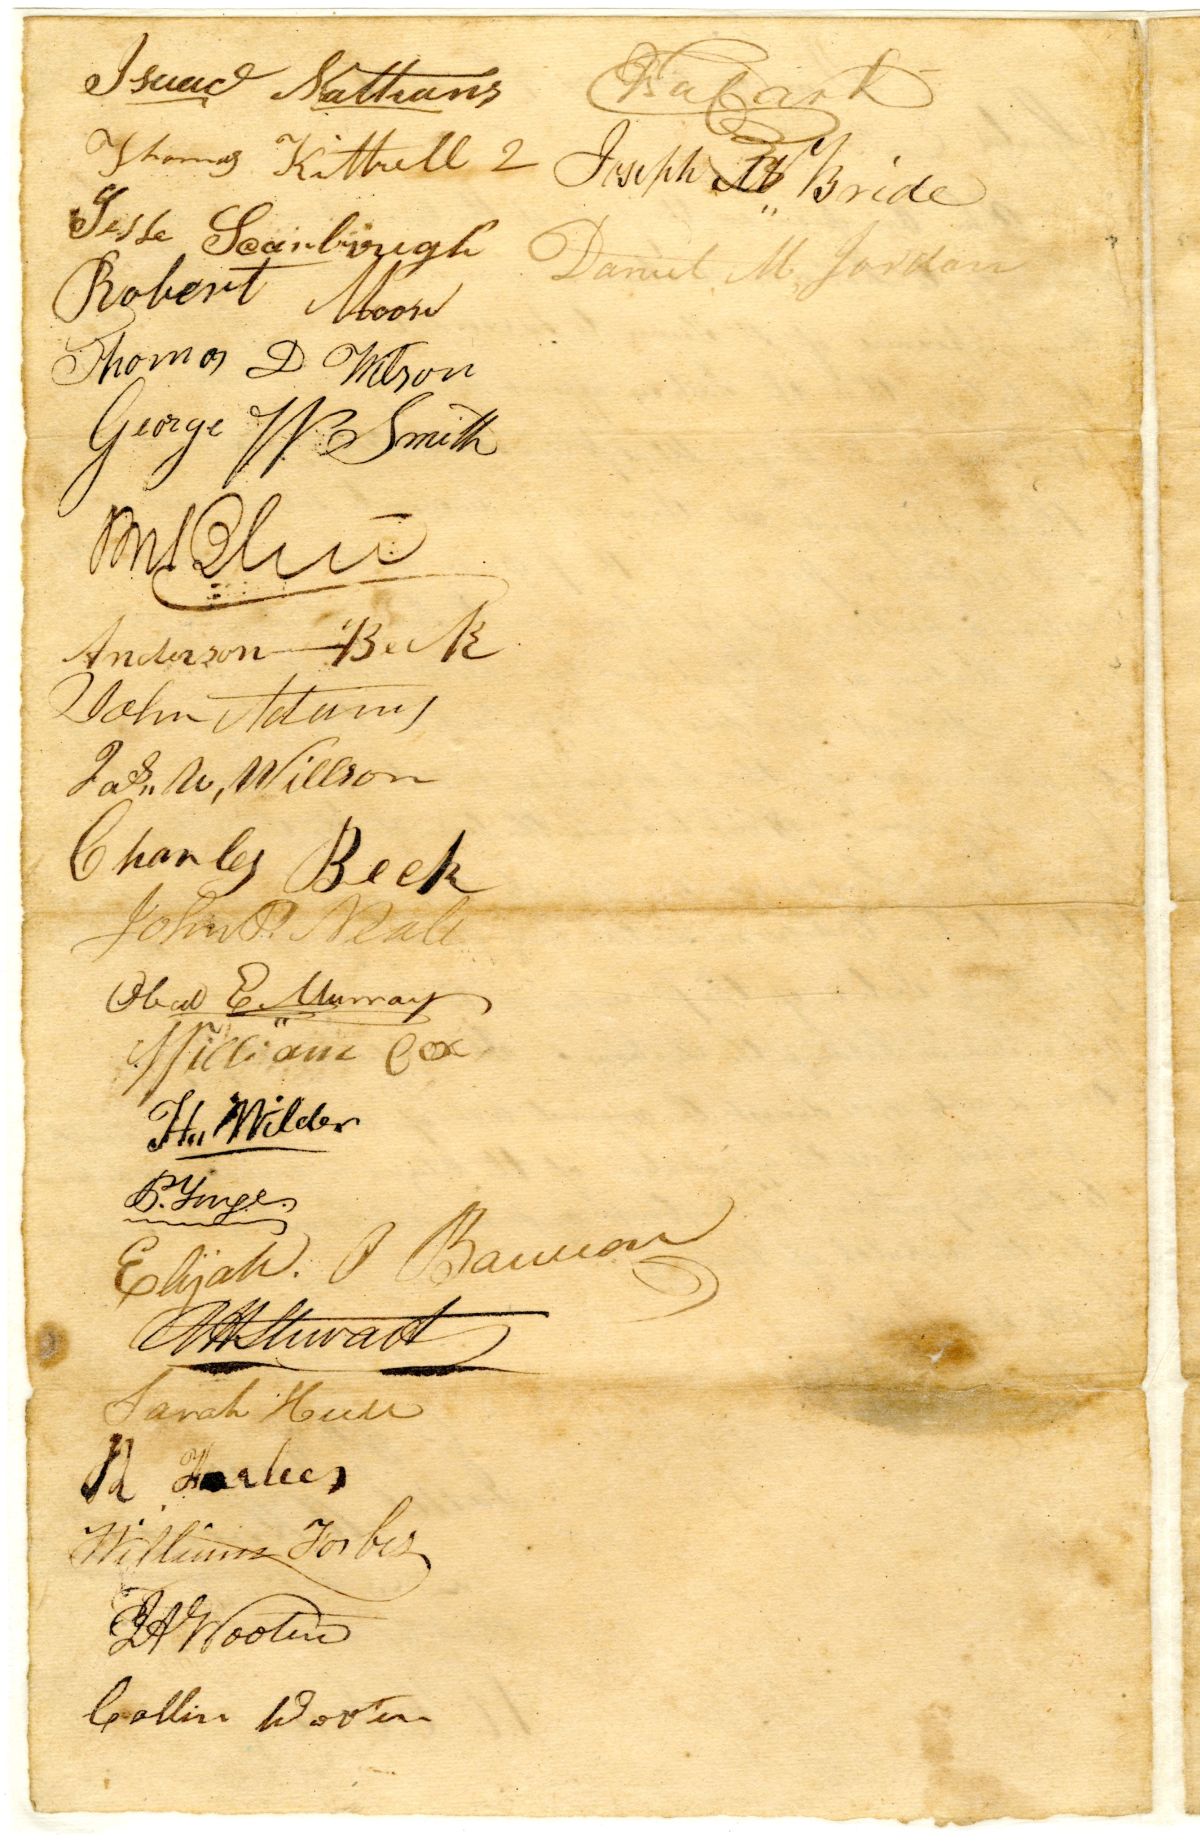 Isaac Nathans
Thomas Kittrell 2
Jesse Scarbrough
Robert Moore
Thomas D Wilson
George W Smith
Anderson Beck
John Adams
Jas. W, Willson
Charles Beck
John P. Neale
Obed E. Murray
William Cox
H,, Wilder
P. Yonge.
Elijah. P Bannon
Stewart
Sarah Hull
R
William Forbes
Wooten
Collin Wooten
Joseph Mc Bride
Daniel M, Jordan